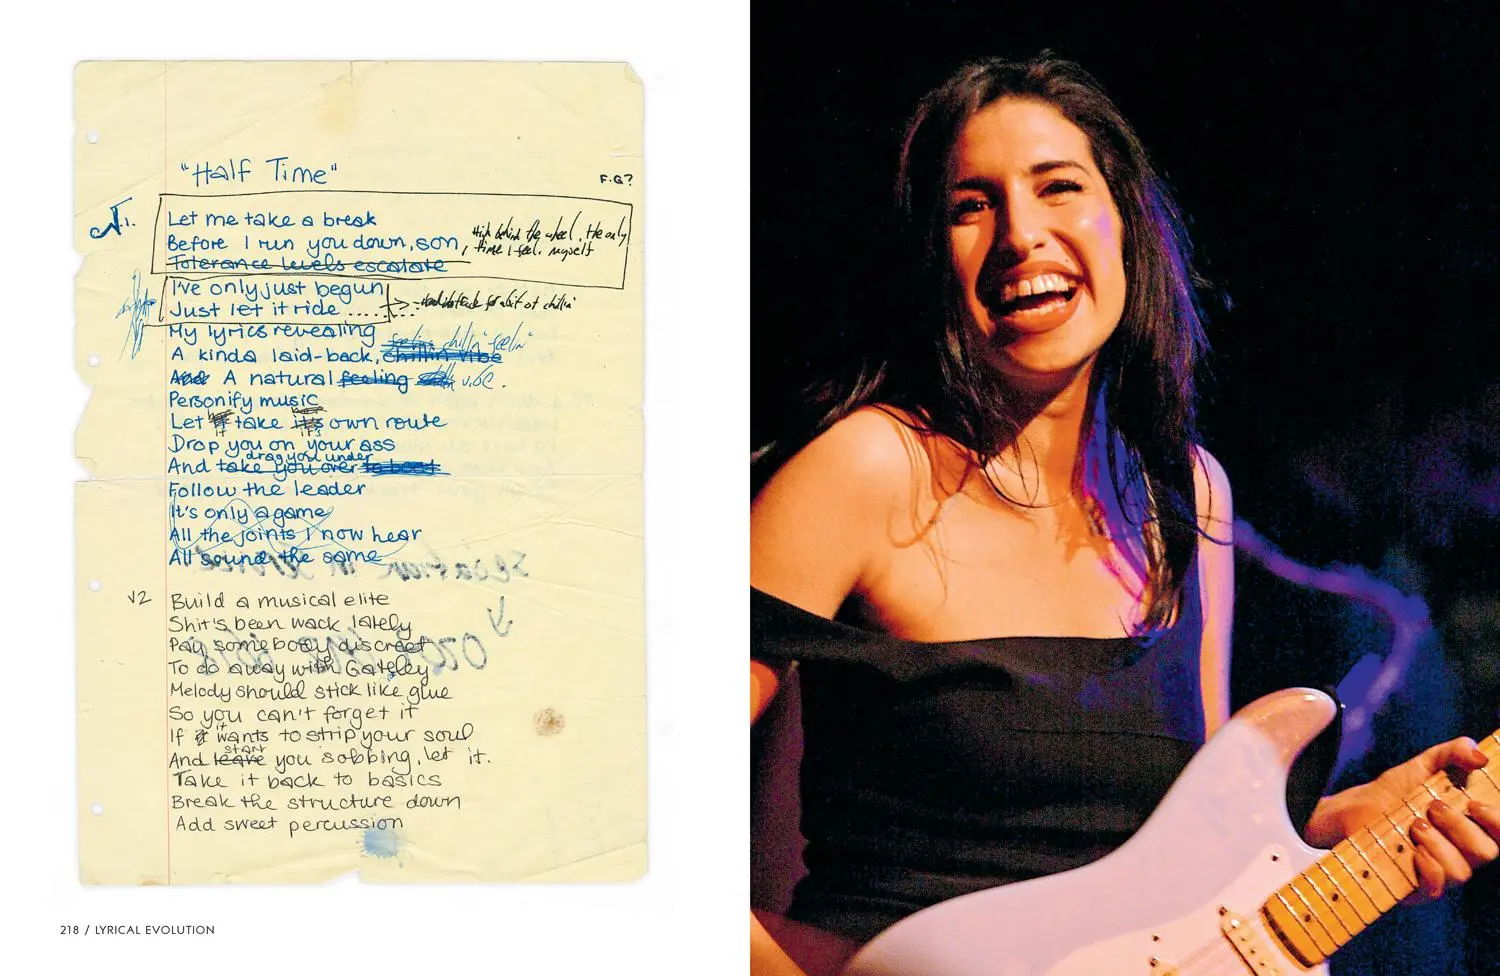 "Half Time"
F.G?
V.1.
Let me take a break
Before I run you down, son,
High behind the wheel, the only
time I feel myself
Tolerance levels escalate
I've only just begun
Just let it ride ........
for a bit of chillin'
My lyrics revealing
feeling chillin' feelin'
A kinda laid-back, chillin vibe
And A natural feeling vibe.
Personify music
Let it take it's own route
it it's
Drop you on your ass
drag you under
And take you over to boot
Follow the leader
It's only a game
All the joints I now hear
All sound the same
V2
Build a musical elite
Shit's been wack lately
Pay somebody discreet
To do away with Gateley
Melody should stick like glue
So you can't forget it
it
If it wants to strip your soul
start
And leave you sobbing, let it.
Take it back to basics
Break the structure down
Add sweet percussion
218 / LYRICAL EVOLUTION